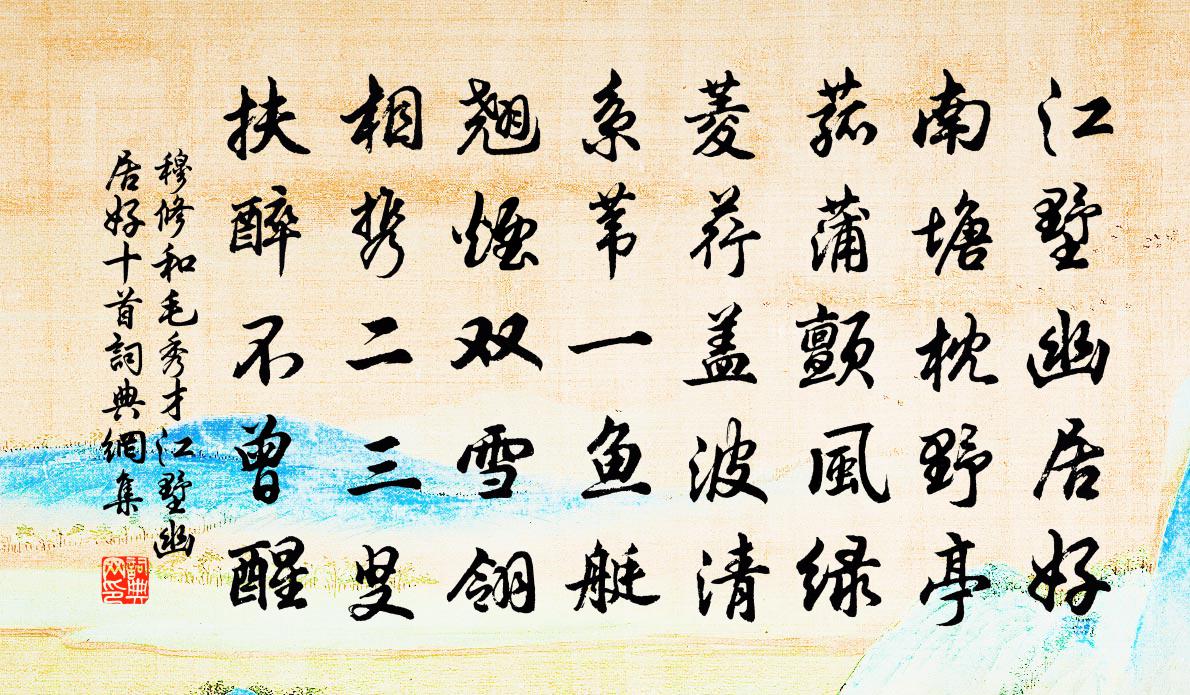 江墅幽居好
南塘枕野亭
菰蒲颤風绿
菱荇盖波清
系苇一鱼艇
翘煙双雪翎
相携二三叟
扶醉不曾醒
穆修和毛秀才江墅幽
居好十首詞典網集
詞典
网印